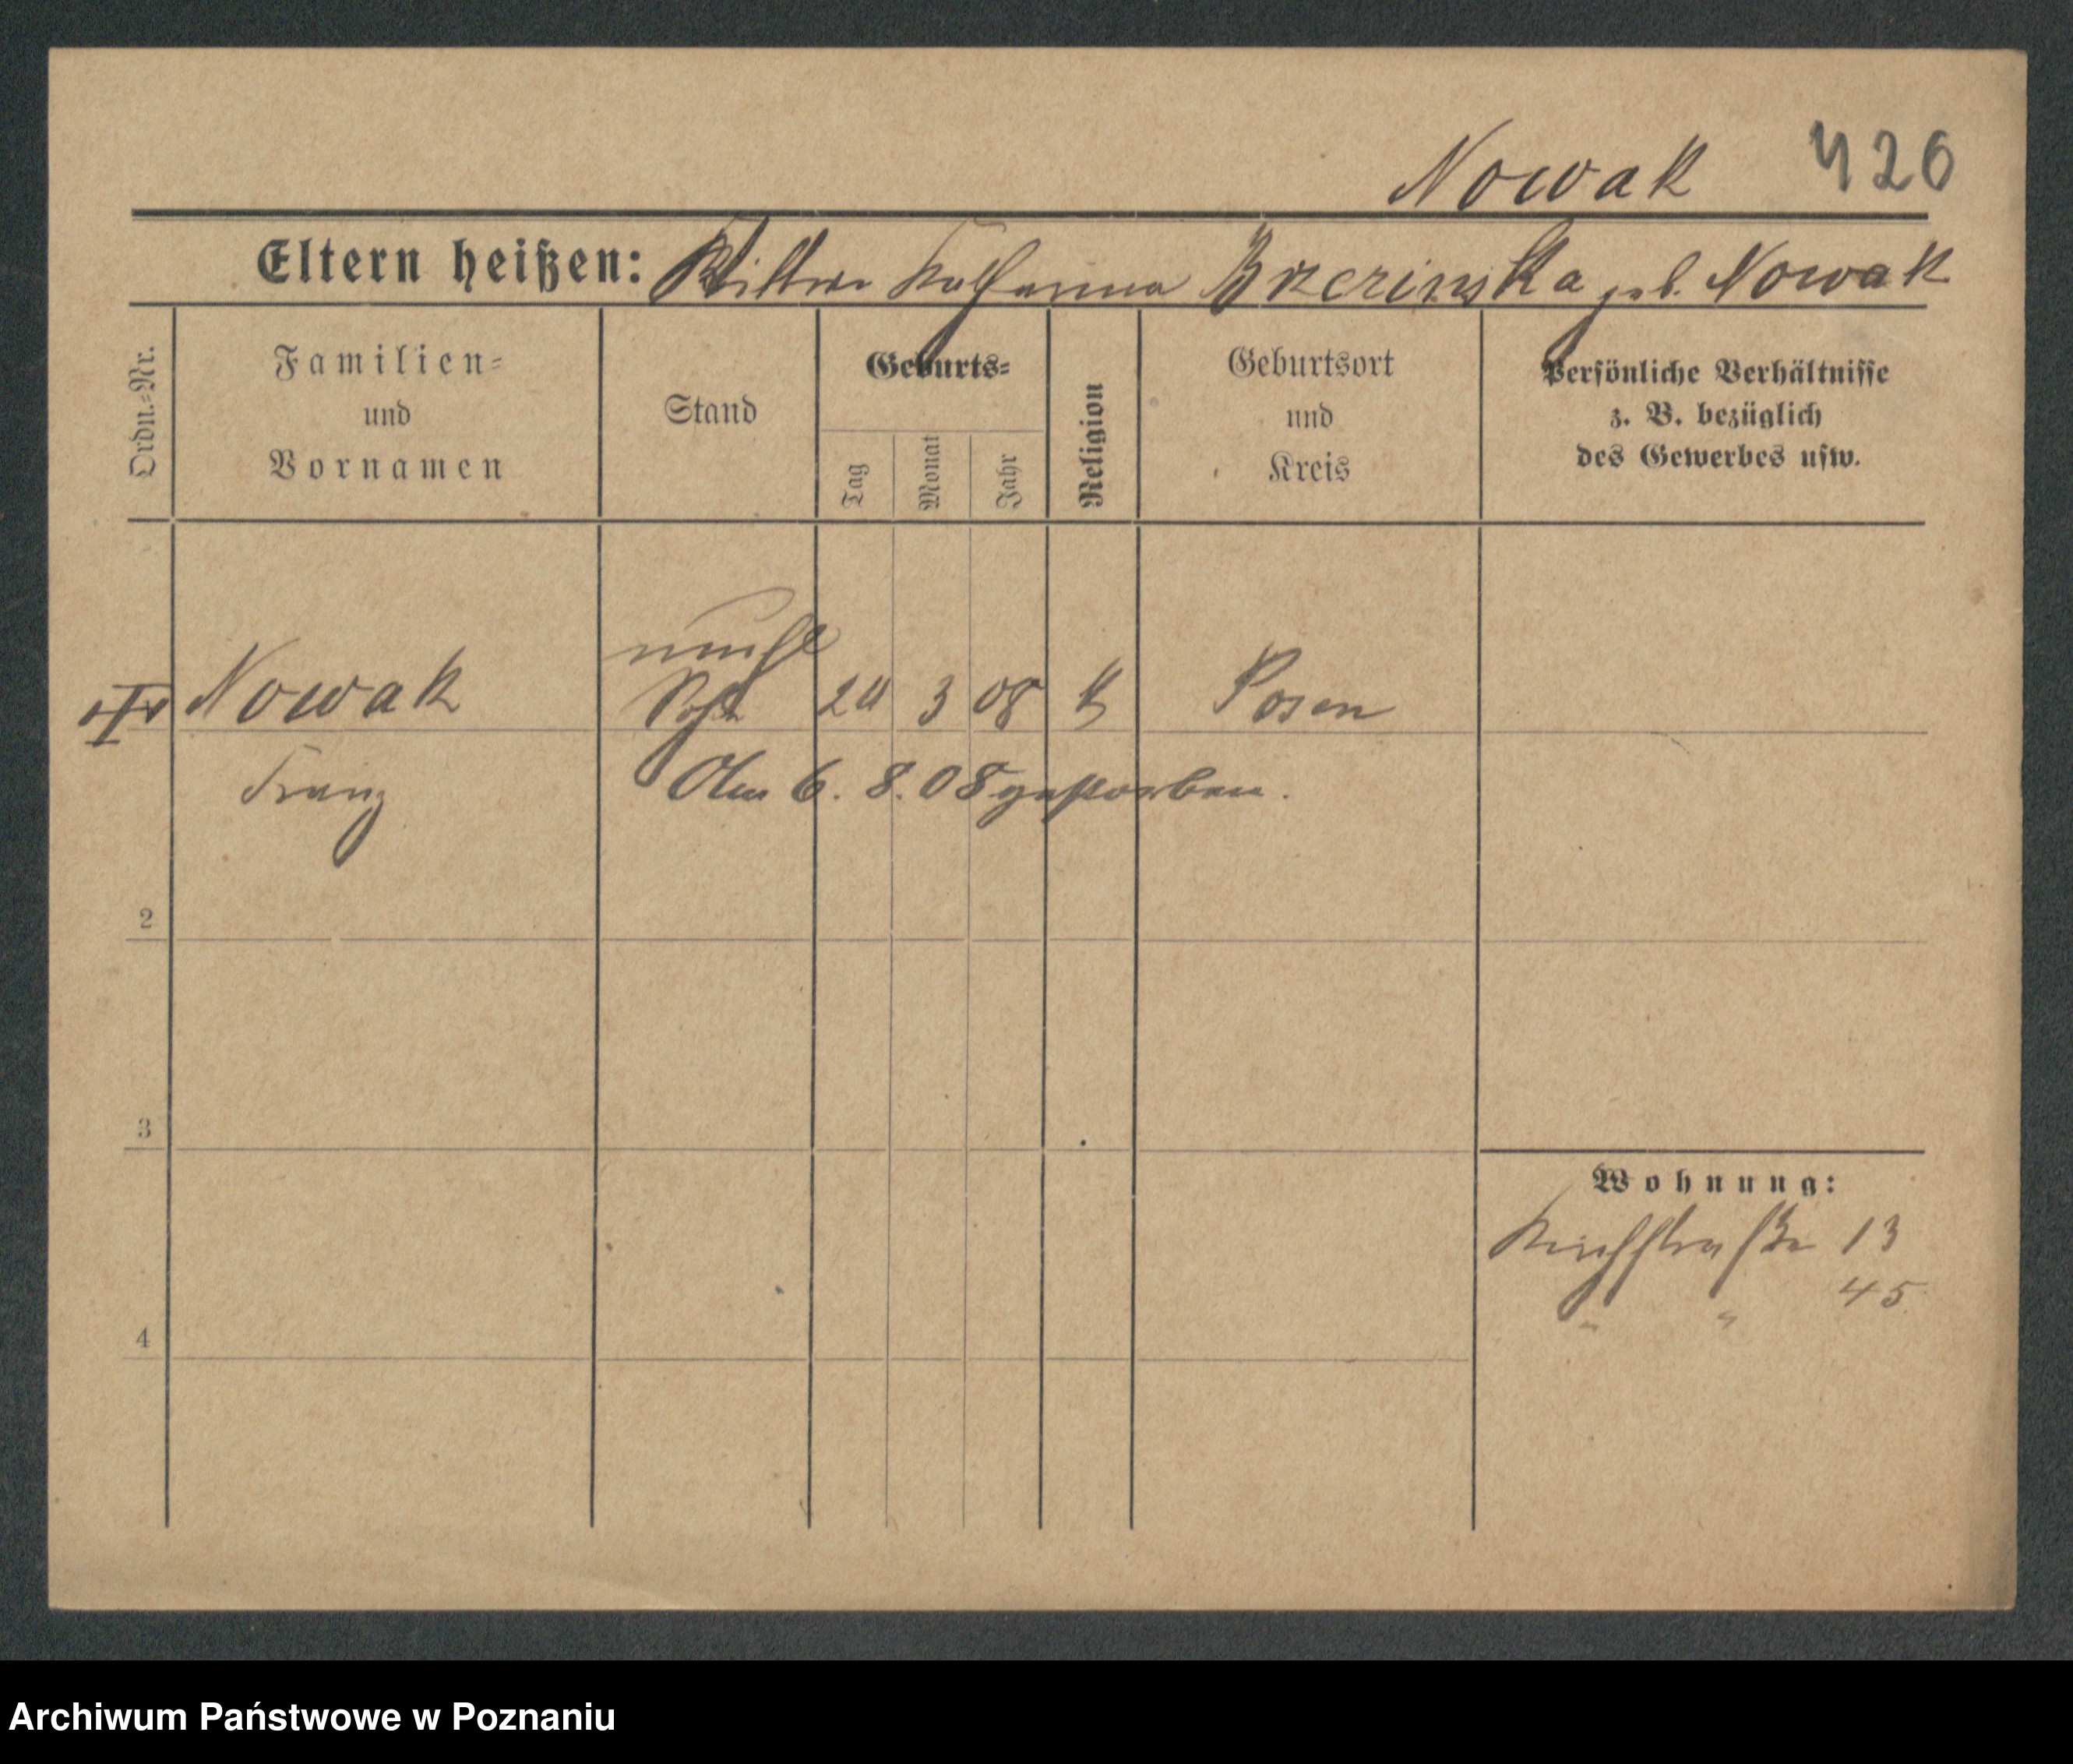 Nowak 426
Eltern heißen: Wittwe Katharina Brzezinska geb. Nowak
Ordn.-Nr.
Familien-
und
Vornamen
Stand
Geburts-
Tag
Monat
Jahr
Religion
Geburtsort
und
Kreis
Persönliche Verhältnisse
z. B. bezüglich
des Gewerbes usw.
unehl
Nowak Sohn 24 3 08 k Posen
Franz Am 6. 8. 08 gestorben.
2
3
4
Wohnung:
Kirchstraße 13
" " 45
Archiwum Państwowe w Poznaniu